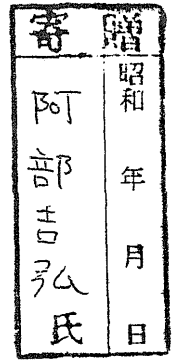 寄贈
昭和 年 月 日
阿部吉弘氏